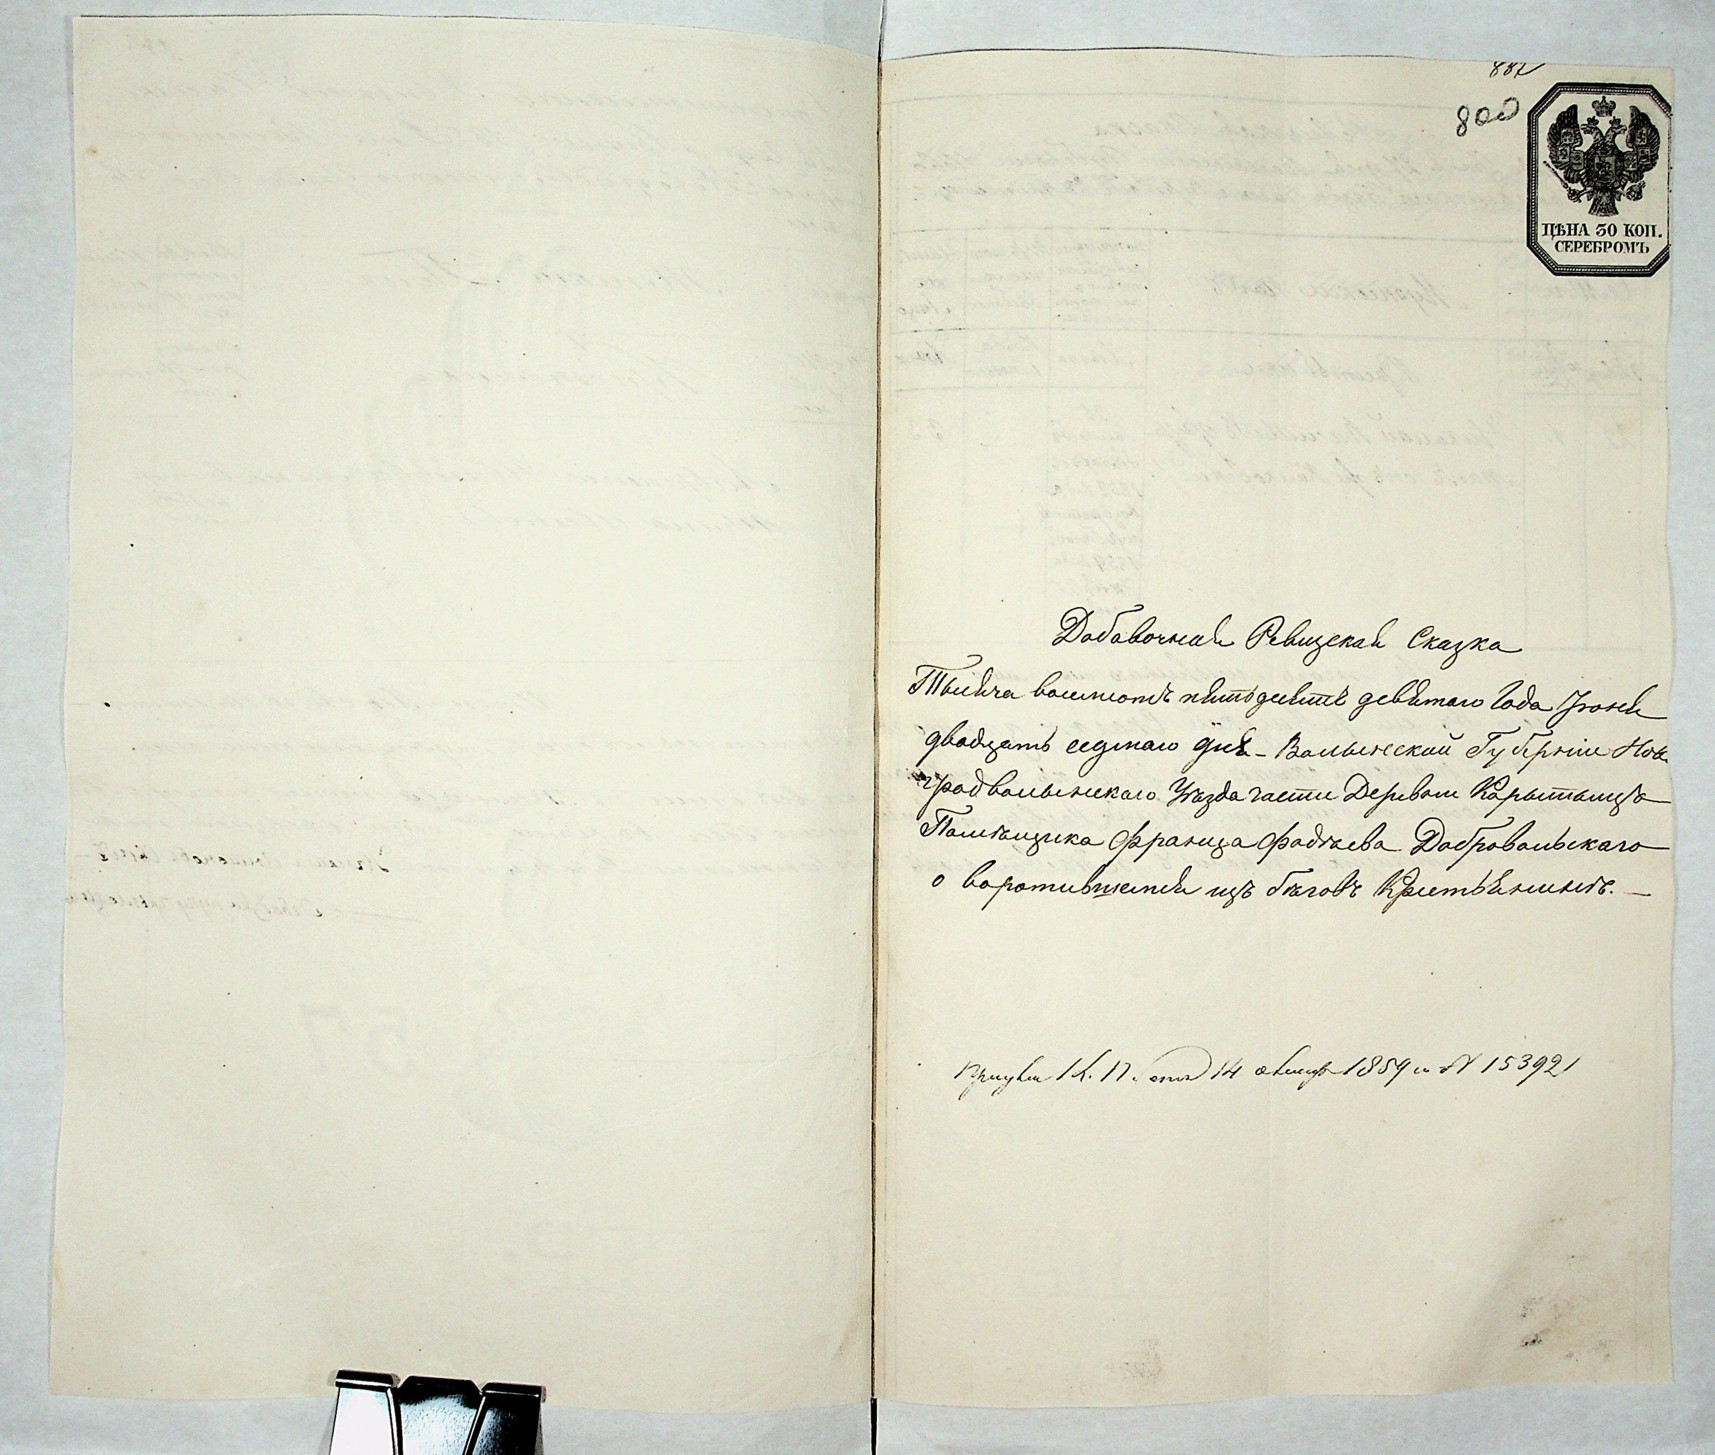 887
800
ЦѢНА 30 КОП.
СЕРЕБРОМЪ
Добавочная Ревизская Сказка
Тысяча восемсотъ пятьдесятъ девятаго Года Іюня
двадцать седмаго дня - Волынской Губерніи Ново
градволынскаго Уѣзда части Деревни Корытыщъ
Помѣщика Франца Фадѣева Добровольскаго
о воротившемся изъ бѣговъ Крестьянинѣ. —
К. П. отъ 14 1859 г. N 153921